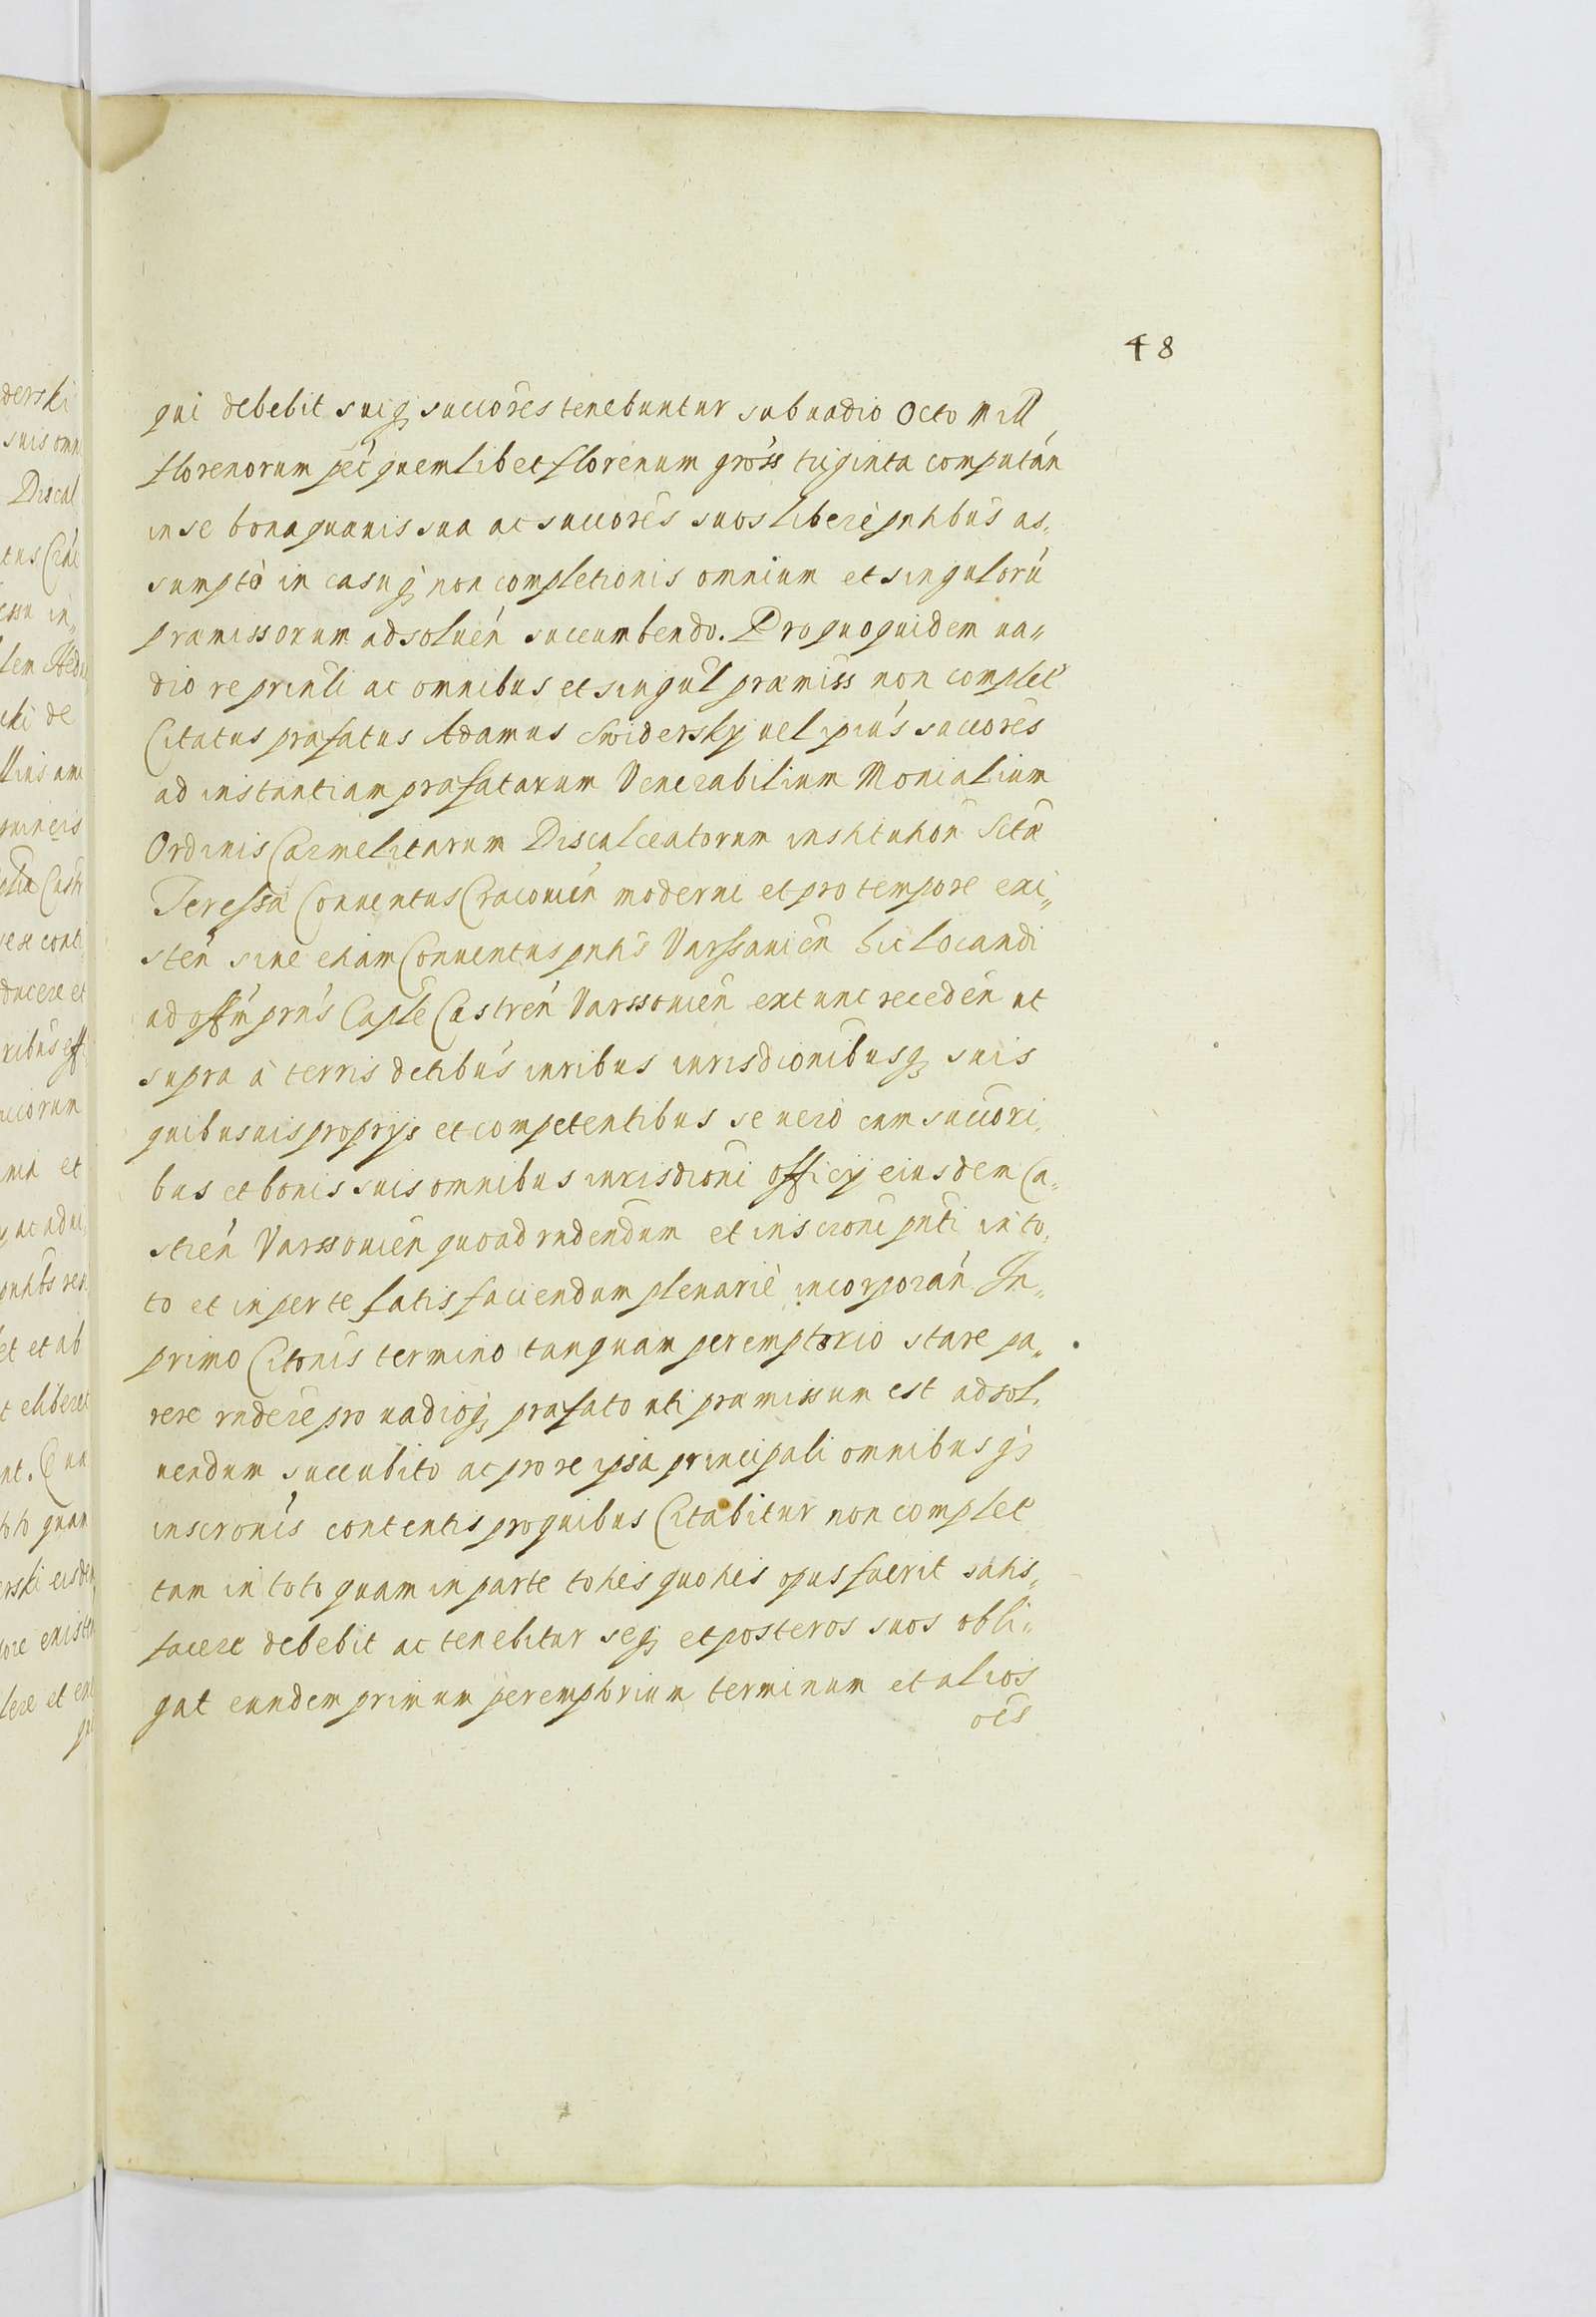 48
qui debebit suiq succores tenebuntur sub vadio Octo Mill
florenorum pec quemlibet florenum gross triginta computan
in se bona quauis sua ac succores suos libere pntibus as„
sumpto in casuq non completionis omnium et singuloru
pramissorum adsoluen succumbendo. Pro quo quidem ua„
dio re prinli ac omnibus et singul pramiss non complet
Citatus prafatus Adamus Swidersky uel ipius succores
ad instantiam prafatarum Venerabilium Monialium
Ordinis Carmelitarum Discalceatorum institution Scta
Teressa Conuentus Cracouien moderni et pro tempore exi„
sten siue etiam Conuentus pntis Varssauien hic locandi
ad offm prns Caple Castren Varssouien ex tunc receden ut
supra a terris detibus iuribus iurisdionibusq suis
quibusuis proprys et competentibus se uero cum succori„
bus et bonis suis omnibus iurisdioni officy eiusdem Ca„
stren Varssouien quoad rndendum et inscroni pnti in to„
to et in perte satis faciendum plenarie incorporan In„
primo Citonis termino tanquam peremptorio stare pa„
rere rndere pro uadioq prafato uti pramissum est adsol„
uendum succubito ac pro re ipsa principali omnibusq
inscronis contentis pro quibus Citabitur non complet
tam in toto quam in parte toties quoties opus fuerit satis„
facere debebit ac tenebitur seq et posteros suos obli„
gat eundem primum peremptorium terminum et alios
oes
derski
suis omn
Discal
lem
cki de
ducere et
ccorum
et et ab
t eliberet
toto quam
erski eisdem
lere et